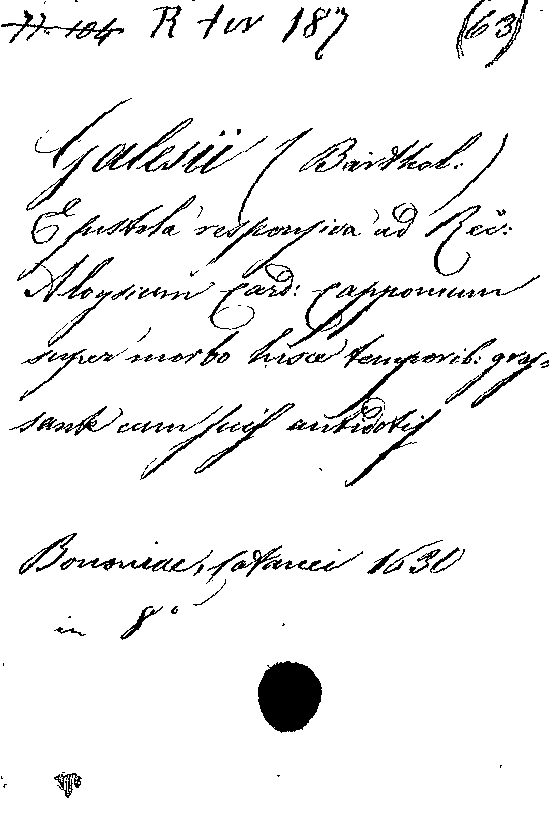 77.104 R IV 187 (63)
Galesii (Barthol:
Epistola responsiva ad Rev:
Aloysium Card: Capponium
super morbo hisce temporib: gras-
sante cum suis antidotis
Bononiae, Catanei 1630
in 8°